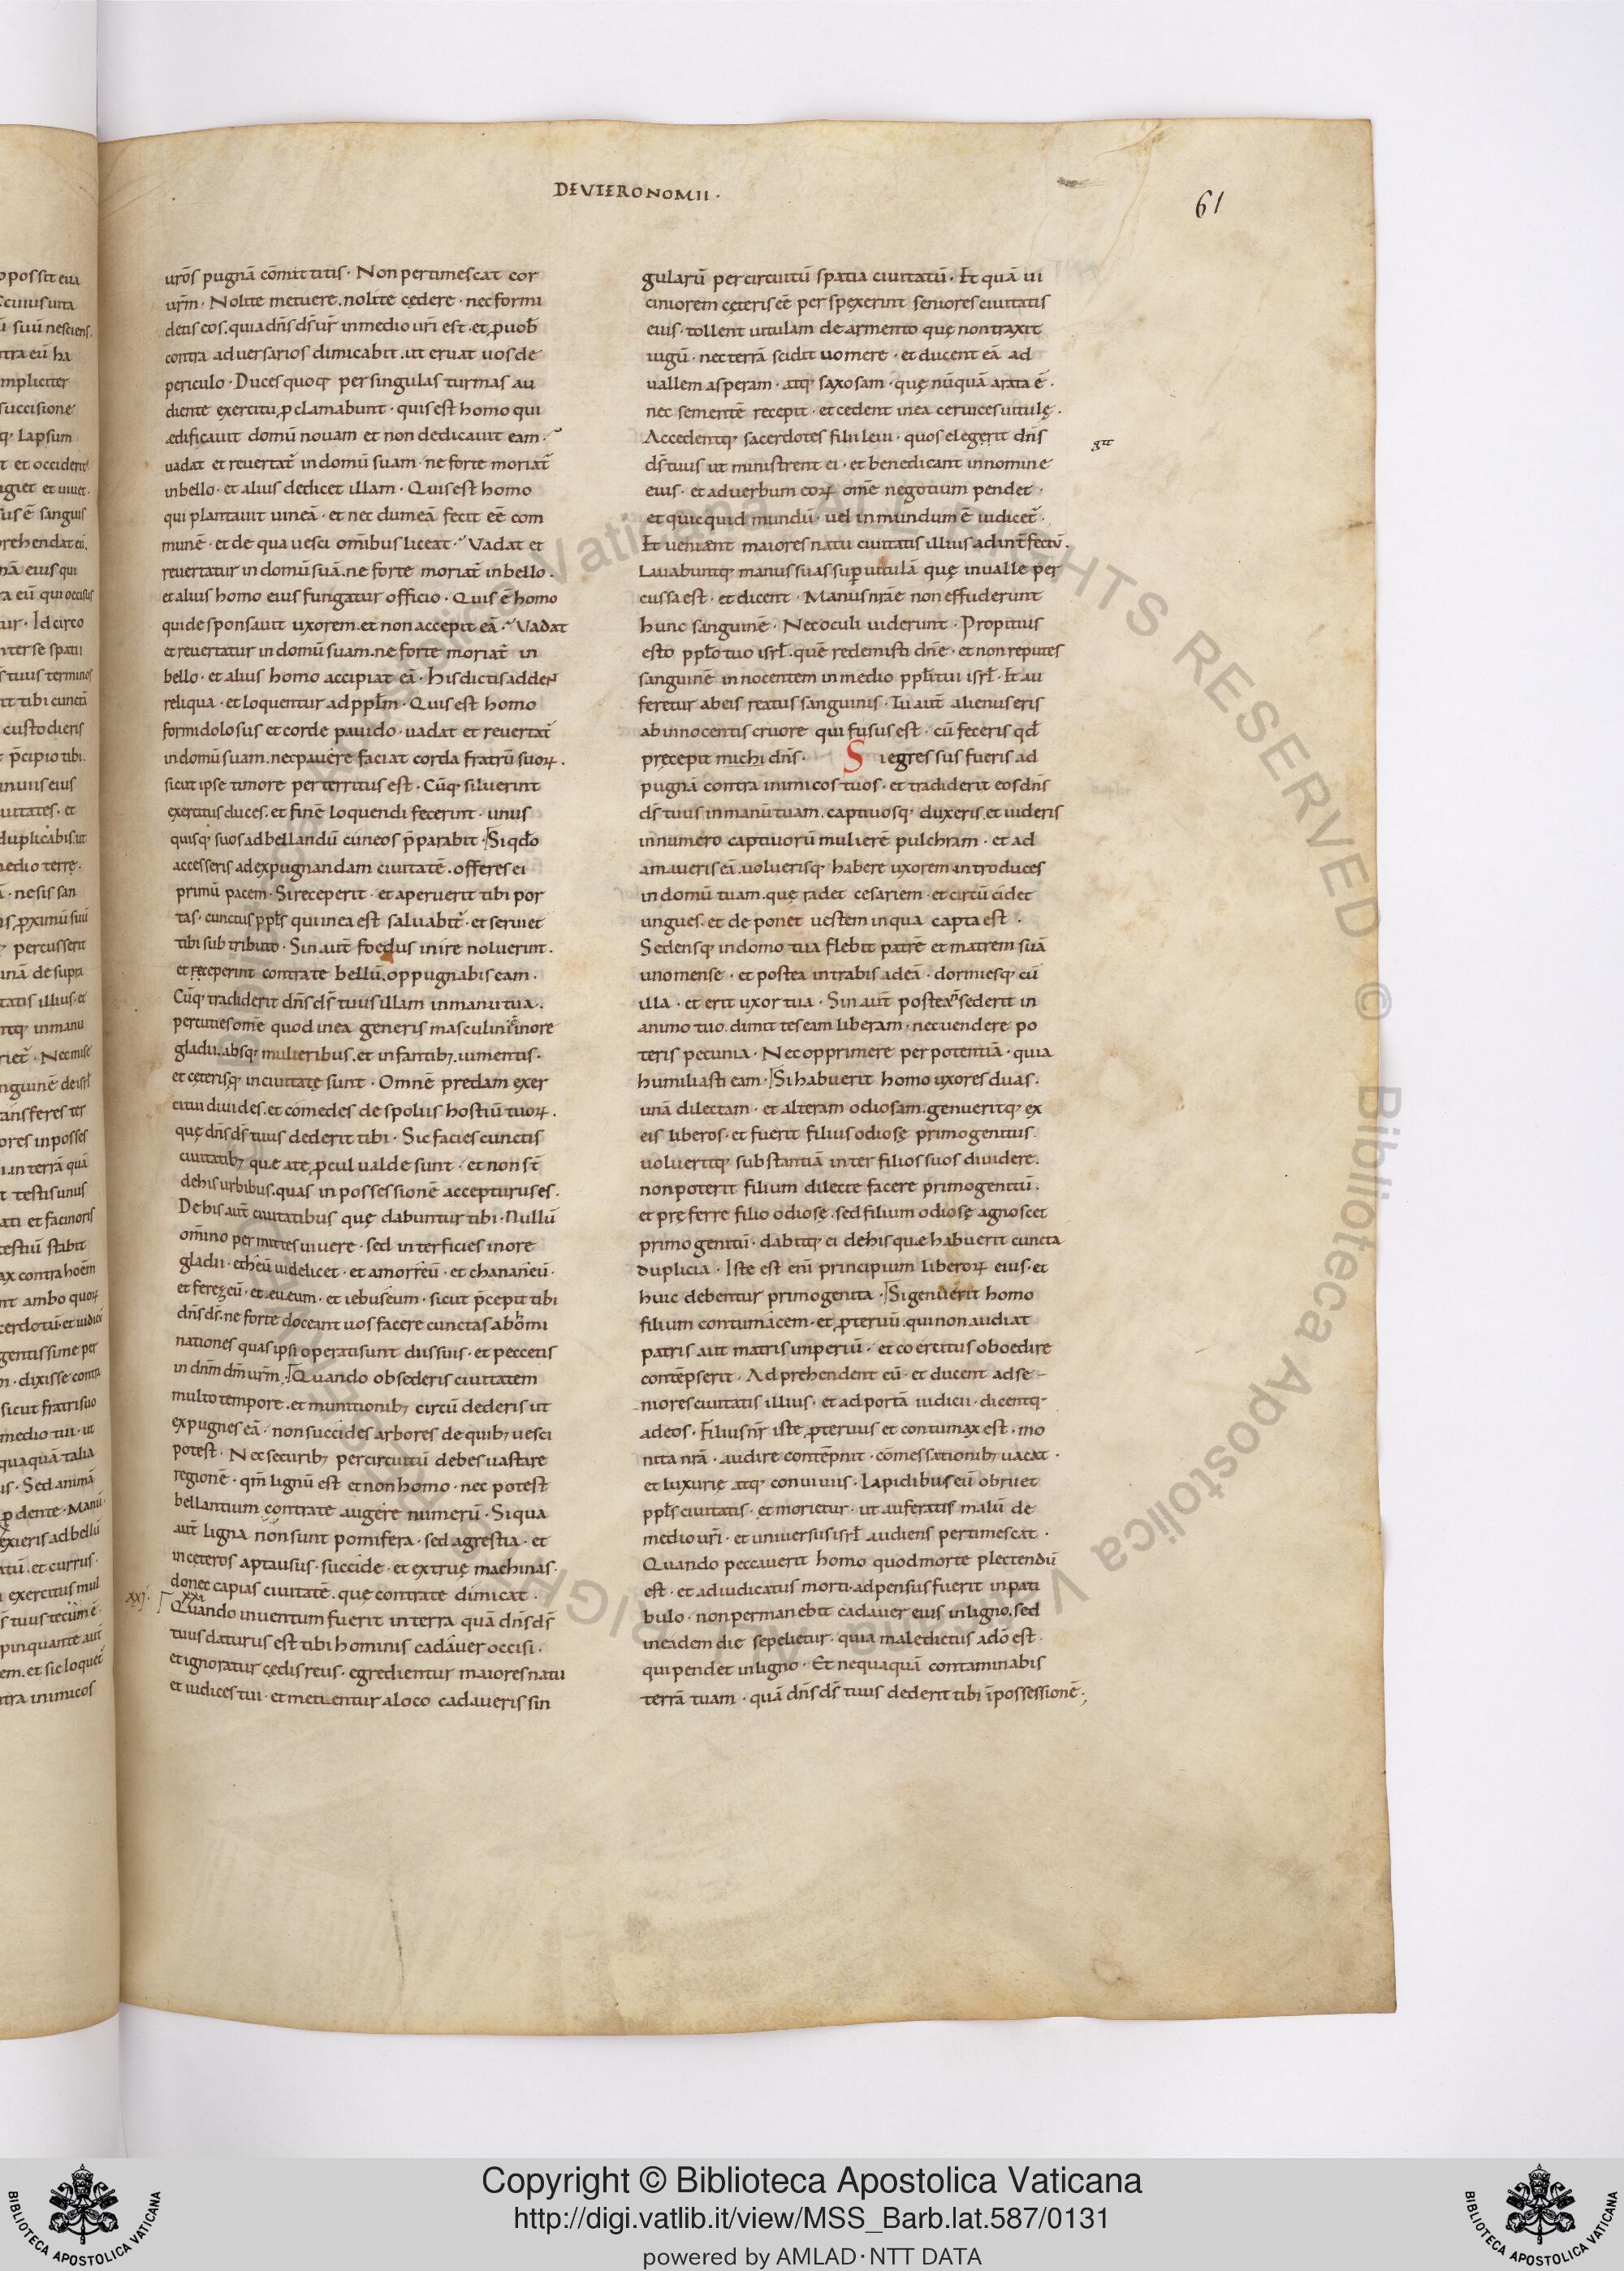 DEUTERONOMII ·
61
uros pugnā cōmittitis · Non pertimescat cor
urm̄ · Nolite metuere . nolite cędere · nec formi
detis eos . quia dn̄s ds̄ ur̄ in medio uri est · et ꝓ uob̄
contra adversarios dimicabit . ut eruat uos de
periculo · Duces quoq; per singulas turmas au
diente exercitu ꝓclamabunt · quis est homo qui
ædificauit domū nouam et non dedicauit eam ·
uadat et reuertat̄ in domū suam · ne forte moriat̄
in bello · et alius dedicet illam · Quis est homo
qui plantauit uineā · et necdum eā fecit eē com
munē · et de qua uesci omibus liceat · Vadat et
reuertatur in domū suā . ne forte moriat̄ in bello .
et alius homo eius fungatur officio · Quis ē homo
qui desponsauit uxorem . et non accepit eā · Vadat
et reuertatur in domū suam . ne forte moriat̄ in
bello · et alius homo accipiat eā · his dictis adder̄
reliqua · et loquentur ad ppl̄m · Quis est homo
formidolosus et corde pauido · uadat et reuertat̄
in domū suam . nec pauere faciat corda fratrū suoꝝ .
sicut ipse timore perterritus est · Cūq; siluerint
exercitus duces . et finē loquendi fecerint · unus
quisq; suos ad bellandū cuneos p̄parabit · Siqdo
accesseris ad expugnandam ciuitatē . offeres ei
primū pacem · Si receperit · et aperuerit tibi por
tas · cunctus ppl̄s qui in ea est saluabit̄ · et seruiet
tibi sub tributo · Sin aut̄ foedus inire noluerint .
et receperint contra te bellū . oppugnabis eam .
Cūq; tradiderit dn̄s ds̄ tuus illam in manu tua .
percuties omē quod in ea generis masculini ē in ore
gladii . absq; mulieribus . et infantib; . iumentis .
et ceterisq; in ciuitatę sunt · Omnē predam exer
citui diuides . et comedes de spoliis hostiū tuoꝝ .
quę dn̄s ds̄ tuus dederit tibi · Sic facies cunctis
ciuitatib; quę a te ꝓcul ualde sunt · et non st̄
de his urbibus . quas in possessionē accepturus es .
De his aut̄ ciuitatibus quę dabuntur tibi · Nullū
omino permittes uiuere · sed interficies in ore
gladii · etheū uidelicet · et amorreū · et chananeū ·
et ferezeū · et eueum · et iebuseum · sicut p̄cepit tibi
dn̄s ds̄ . ne forte doceant uos facere cunctas abomi
nationes quas ipsi operati sunt diis suis · et peccetis
in dn̄m dm̄ urm̄ . Quando obsederis ciuitatem
multo tempore . et munitionib; circū dederis ut
expugnes eā · non succides arbores de quib; uesci
potest · Nec securib; per circuitū debes uastare
regionē · qm̄ lignū est et non homo · nec potest
bellantium contra te augere numerū · Siqua
aut̄ ligna non sunt pomifera · sed agrestia · et
in ceteros apta usus · succide · et extruę machinas ·
donec capias ciuitatē . quę contra te dimicat .
xxj. xxi
Quando inuentum fuerit in terra quā dn̄s ds̄
tuus daturus est tibi hominis cadauer occisi .
et ignoratur cędis reus · egredientur maiores natu
et iudices tui · et metientur a loco cadaueris sin
gularū per circuitū spatia ciuitatū · Et quā ui
ciniorem cęteris eē perspexerint seniores ciuitatis
eius · tollent uitulam de armento quę non traxit
iugū · nec terrā scidit uomere · et ducent eā ad
uallem asperam · atq; saxosam · quę nūquā arata ē .
nec sementē recepit · et cedent in ea ceruices uitulę .
Accedentq; sacerdotes filii leui · quos elegerit dn̄s
ds̄ tuus ut ministrent ei · et benedicant in nomine
eius · et ad uerbum eoꝝ omē negotium pendet ·
et quicquid mundū · uel inmundum ē iudicet̄ ·
Et ueniant maiores natu ciuitatis illius ad int̄fectū .
Lauabuntq; manus suas sup̄ uitulā quę in ualle per
cussa est · et dicent · Manus nr̄ae non effuderunt
hunc sanguinē · Nec oculi uiderunt · Propitius
esto ppl̄o tuo isrl̄ . quē redemisti dn̄e · et non reputes
sanguinē innocentem in medio ppl̄i tui isrl̄ · Et au
feretur ab eis reatus sanguinis · Tu aut̄ alienus eris
ab innocentis cruore qui fusus est · cū feceris qd̄
precepit michi dn̄s · Si egressus fueris ad
pugnā contra inimicos tuos · et tradiderit eos dn̄s
ds̄ tuus in manū tuam . captiuosq; duxeris . et uideris
in numero captiuorū mulierē pulchram · et ad
amaueris eā . uoluerisq; habere uxorem introduces
in domū tuam . quę radet cesariem · et circū cidet
ungues . et deponet uestem in qua capta est ·
Sedensq; in domo tua flebit patrē et matrem suā
uno mense · et postea intrabis ad eā · dormiesq; cū
illa · et erit uxor tua · Sin aut̄ postea n̄ sederit in
animo tuo . dimittes eam liberam · nec uendere po
teris pecunia · Nec opprimere per potentiā · quia
humiliasti eam · Si habuerit homo uxores duas .
unā dilectam · et alteram odiosam . genueritq; ex
eis liberos · et fuerit filius odiosę primogenitus .
uolueritq; substantiā inter filios suos diuidere .
non poterit filium dilecte facere primogenitū .
et pręferre filio odiosę . sed filium odiosę agnoscet
primogenitū · dabitq; ei de his quæ habuerit cuncta
duplicia · Iste est eni principium liberoꝝ eius · et
huic debentur primogenita · Si genuerit homo
filium contumacem · et ꝓteruū . qui non audiat
patris aut matris imperiū · et coercitus oboedire
contēpserit · Adprehendent eū · et ducent ad se-
niores ciuitatis illius · et ad portā iudicii · dicentq;
ad eos · Filius nr̄ iste ꝓteruus et contumax est · mo
nita nrā · audire contēpnit · cōmessationib; uacat ·
et luxurię atq; conuiuiis · Lapidibus eū obruet
ppl̄s ciuitatis · et morietur · ut auferatis malū de
medio uri · et uniuersus isrl̄ audiens pertimescat ·
Quando peccauerit homo quod morte plectendū
est · et adiudicatus morti · adpensus fuerit in pati
bulo · non permanebit cadauer eius in ligno . sed
in eadem die sepelietur · quia maledictus a dō est ·
qui pendet in ligno · Et nequaquā contaminabis
terrā tuam · quā dn̄s ds̄ tuus dederit tibi ī possessionē ;
Copyright © Biblioteca Apostolica Vaticana
http://digi.vatlib.it/view/MSS_Barb.lat.587/0131
powered by AMLAD·NTT DATA
BIBLIOTECA APOSTOLICA VATICANA
BIBLIOTECA APOSTOLICA VATICANA